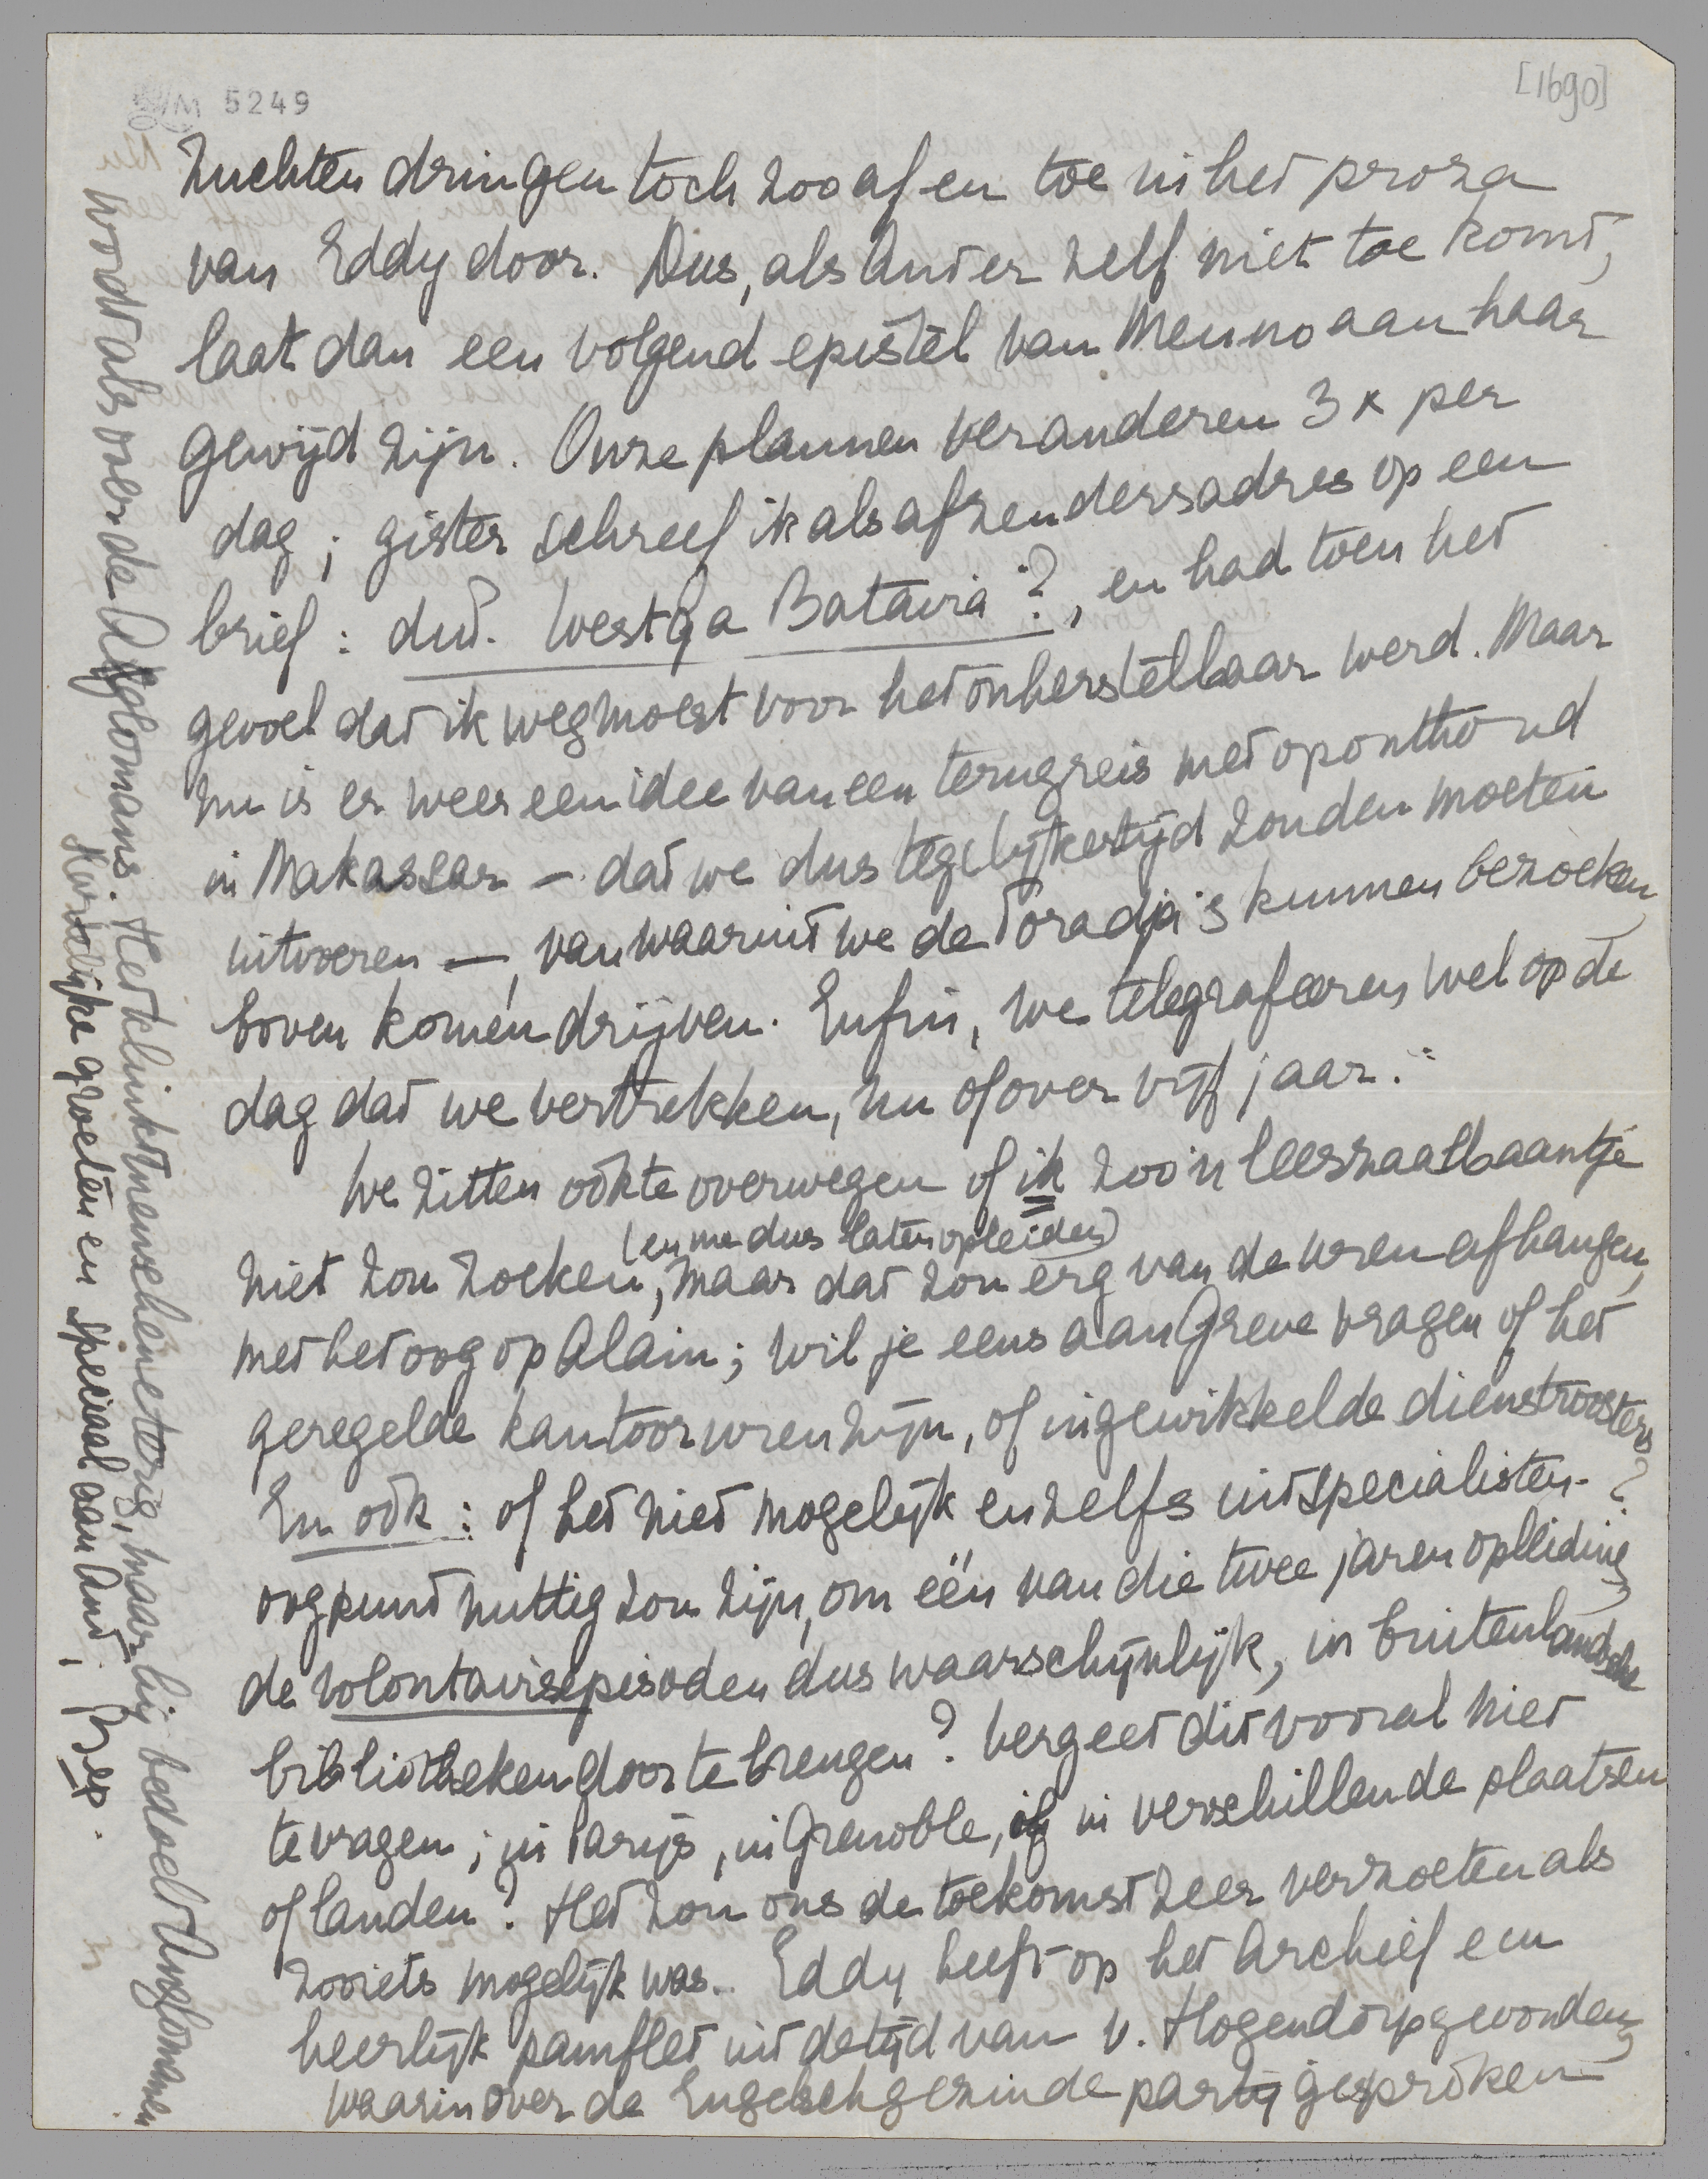 5249
[1690]
Zuchten dringen toch zoo af en toe in het proza
van Eddy door. Dus, als Ant er zelf niet toe komt,
laat dan een volgend epistel van Menno aan haar
gewijd zijn. Onze plannen veranderen 3 x per
dag; gister schreef ik als afzendersadres op een
brief: dut. Westga Batavia?, en had toen het
gevoel dat ik weg moest voor het onherstelbaar werd. Maar
nu is er weer een idee van een terugreis met oponthoud
in Makassar – dat we dus tegelijkertijd zouden moeten
uitvoeren –, van waaruit we de Toradja's kunnen bezoeken,
boven komen drijven. Enfin, we telegrafeeren wel op de
dag dat we vertrekken, nu of over vijf jaar.
We zitten ook te overwegen of ik zoo'n leeszaalbaantje
(en me dus laten opleiden)
niet zou zoeken, maar dat zou erg van de uren afhangen,
met het oog op Alain; wil je eens aan Greve vragen of het
geregelde kantooruren zijn, of ingewikkelde dienstroosters?
En ook: of het niet mogelijk en zelfs uit specialisten-
oogpunt nuttig zou zijn, om één van die twee jaren opleiding,
de volontairsepisoden dus waarschijnlijk, in buitenlandsche
bibliotheken door te brengen? Vergeet dit vooral niet
te vragen; in Parijs, in Grenoble, of in verschillende plaatsen
of landen? Het zou ons de toekomst zeer verzoeten als
zooiets mogelijk was. Eddy heeft op het Archief een
heerlijk pamflet uit de tijd van v. Hogendorp gevonden,
waarin over de Engelschgezinde partij gesproken
wordt als over de Anglomans. Het klinkt menscheneterig, maar hij bedoelt Anglomanen
Hartelijke groeten en speciaal aan Ant,
Bep.